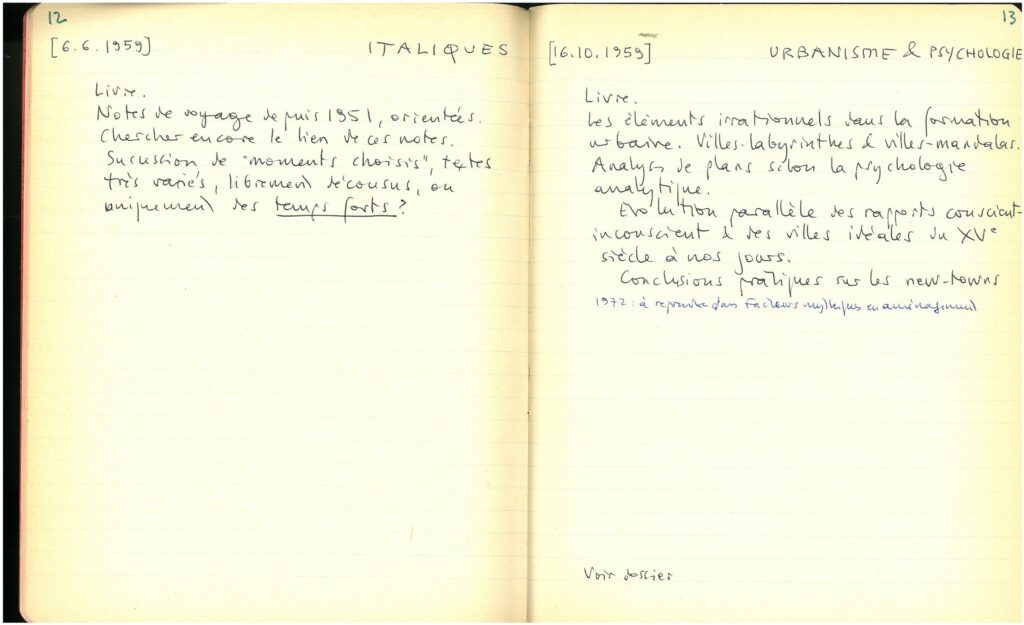 12
[6.6.1959] ITALIQUES
Livre.
Notes de voyage depuis 1951, orientées.
Chercher encore le lien de ces notes.
Sucussion de "moments choisis", textes
très variés, librement décousus, ou
uniquement des temps forts?
13
[16.10.1959] URBANISME & PSYCHOLOGIE
Livre.
Les éléments irrationnels dans la formation
urbaine. Villes-labyrinthes & villes-mandalas.
Analyses de plans selon la psychologie
analytique.
Evolution parallèle des rapports conscient-
inconscient & des villes idéales du XVe
siècle à nos jours.
Conclusions pratiques sur les new-towns
1972: à reprendre dans Facteurs mythiques en aménagement
Voir dossier